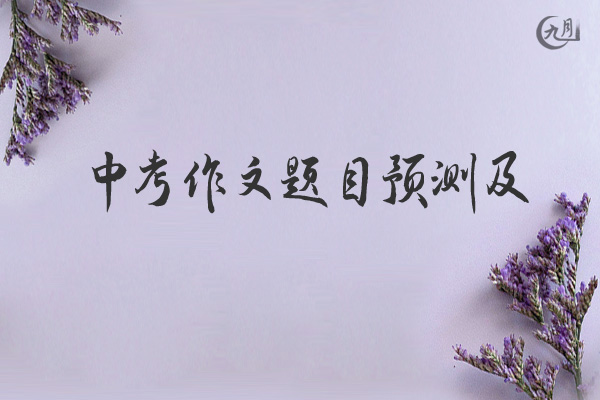 九月
中考作文题目预测及